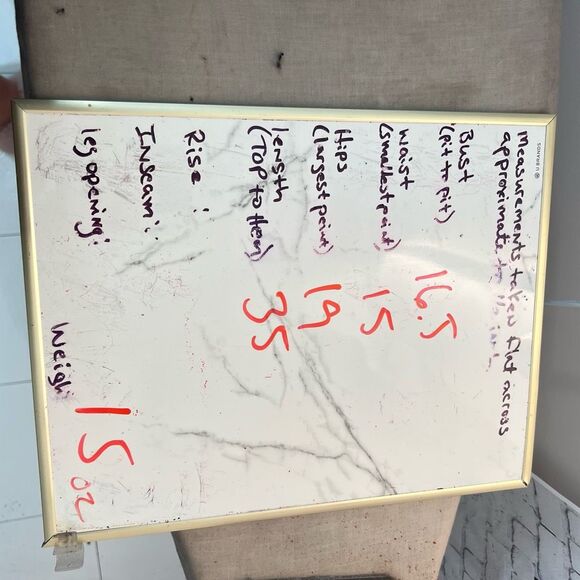 U BRANDS
Measurements taken flat across
approximate to
Bust
(Pit to pit) 16.5
Waist
(smallest point) 15
Hips
(largest point) 19
length
(TOP to Hem) 35
Rise :
Inseam:
leg opening:
Weigh 15 oz